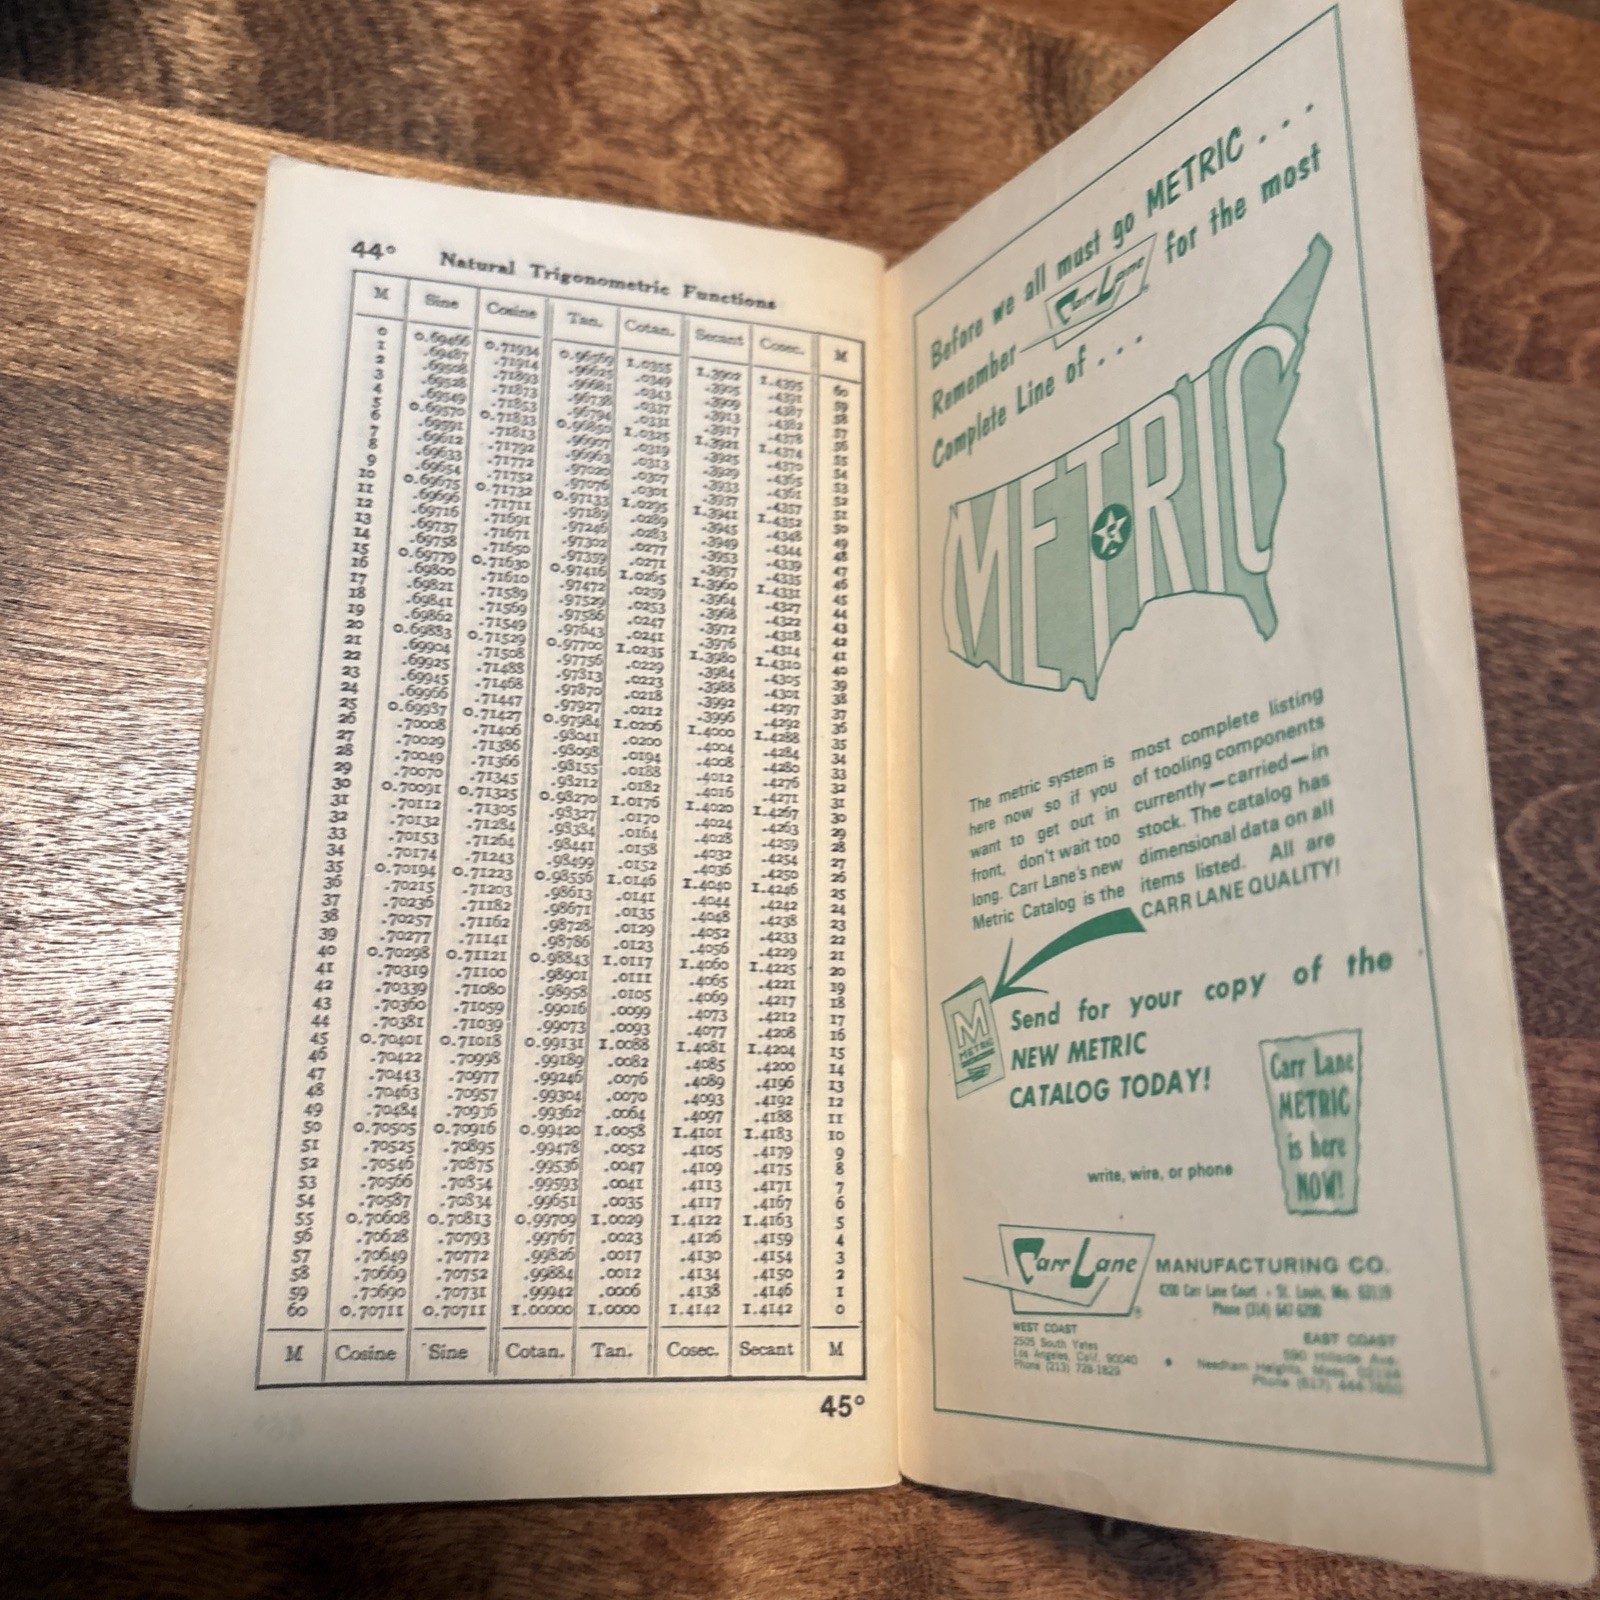 44°
Natural Trigonometric Functions
M Sine Cosine Tan. Cotan. Secant Cosec. M
0 0.69466 0.71934 0.96569 1.0355 1.3902 1.4395 60
1 .69487 .71914 .96625 .0349 .3905 .4391 59
2 .69508 .71893 .96681 .0343 .3909 .4387 58
3 .69528 .71873 .96738 .0337 .3913 .4382 57
4 .69549 .71853 .96794 .0331 .3917 .4378 56
5 0.69570 0.71833 0.96850 1.0325 1.3921 1.4374 55
6 .69591 .71813 .96907 .0319 .3925 .4370 54
7 .69612 .71792 .96963 .0313 .3929 .4365 53
8 .69633 .71772 .97020 .0307 .3933 .4361 52
9 .69654 .71752 .97076 .0301 .3937 .4357 51
10 0.69675 0.71732 0.97133 1.0295 1.3941 1.4352 50
11 .69696 .71711 .97189 .0289 .3945 .4348 49
12 .69716 .71691 .97246 .0283 .3949 .4344 48
13 .69737 .71671 .97302 .0277 .3953 .4339 47
14 .69758 .71650 .97359 .0271 .3957 .4335 46
15 0.69779 0.71630 0.97416 1.0265 1.3960 1.4331 45
16 .69800 .71610 .97472 .0259 .3964 .4327 44
17 .69821 .71589 .97529 .0253 .3968 .4322 43
18 .69841 .71569 .97586 .0247 .3972 .4318 42
19 .69862 .71549 .97643 .0241 .3976 .4314 41
20 0.69883 0.71529 0.97700 1.0235 1.3980 1.4310 40
21 .69904 .71508 .97756 .0229 .3984 .4305 39
22 .69925 .71488 .97813 .0223 .3988 .4301 38
23 .69945 .71468 .97870 .0218 .3992 .4297 37
24 .69966 .71447 .97927 .0212 .3996 .4292 36
25 0.69987 0.71427 0.97984 1.0206 1.4000 1.4288 35
26 .70008 .71406 .98041 .0200 .4004 .4284 34
27 .70029 .71386 .98098 .0194 .4008 .4280 33
28 .70049 .71366 .98155 .0188 .4012 .4276 32
29 .70070 .71345 .98212 .0182 .4016 .4271 31
30 0.70091 0.71325 0.98270 1.0176 1.4020 1.4267 30
31 .70112 .71305 .98327 .0170 .4024 .4263 29
32 .70132 .71284 .98384 .0164 .4028 .4259 28
33 .70153 .71264 .98441 .0158 .4032 .4254 27
34 .70174 .71243 .98499 .0152 .4036 .4250 26
35 0.70194 0.71223 0.98556 1.0146 1.4040 1.4246 25
36 .70215 .71203 .98613 .0141 .4044 .4242 24
37 .70236 .71182 .98671 .0135 .4048 .4238 23
38 .70257 .71162 .98728 .0129 .4052 .4233 22
39 .70277 .71141 .98786 .0123 .4056 .4229 21
40 0.70298 0.71121 0.98843 1.0117 1.4060 1.4225 20
41 .70319 .71100 .98901 .0111 .4065 .4221 19
42 .70339 .71080 .98958 .0105 .4069 .4217 18
43 .70360 .71059 .99016 .0099 .4073 .4212 17
44 .70381 .71039 .99073 .0093 .4077 .4208 16
45 0.70401 0.71018 0.99131 1.0088 1.4081 1.4204 15
46 .70422 .70998 .99189 .0082 .4085 .4200 14
47 .70443 .70977 .99246 .0076 .4089 .4196 13
48 .70463 .70957 .99304 .0070 .4093 .4192 12
49 .70484 .70936 .99362 .0064 .4097 .4188 11
50 0.70505 0.70916 0.99420 1.0058 1.4101 1.4183 10
51 .70525 .70895 .99478 .0052 .4105 .4179 9
52 .70546 .70875 .99536 .0047 .4109 .4175 8
53 .70566 .70854 .99593 .0041 .4113 .4171 7
54 .70587 .70834 .99651 .0035 .4117 .4167 6
55 0.70608 0.70813 0.99709 1.0029 1.4122 1.4163 5
56 .70628 .70793 .99767 .0023 .4126 .4159 4
57 .70649 .70772 .99826 .0017 .4130 .4154 3
58 .70669 .70752 .99884 .0012 .4134 .4150 2
59 .70690 .70731 .99942 .0006 .4138 .4146 1
60 0.70711 0.70711 1.00000 1.0000 1.4142 1.4142 0
M Cosine Sine Cotan. Tan. Cosec. Secant M
45°
Before we all must go METRIC . . .
Remember Carr Lane for the most
Complete Line of . . .
METRIC
The metric system is
here now so if you
want to get out in
front, don't wait too
long. Carr Lane's new
Metric Catalog is the
most complete listing
of tooling components
currently—carried—in
stock. The catalog has
dimensional data on all
items listed. All are
CARR LANE QUALITY!
M
METRIC
Send for your copy of the
NEW METRIC
CATALOG TODAY!
Carr Lane
METRIC
is here
NOW!
write, wire, or phone
Carr Lane MANUFACTURING CO.
4200 Carr Lane Court • St. Louis, Mo. 63119
Phone (314) 647-6200
WEST COAST
2505 South Yates
Los Angeles, Calif. 90040
Phone (213) 728-1829
EAST COAST
590 Hillside Ave.
Needham Heights, Mass.
Phone (617)